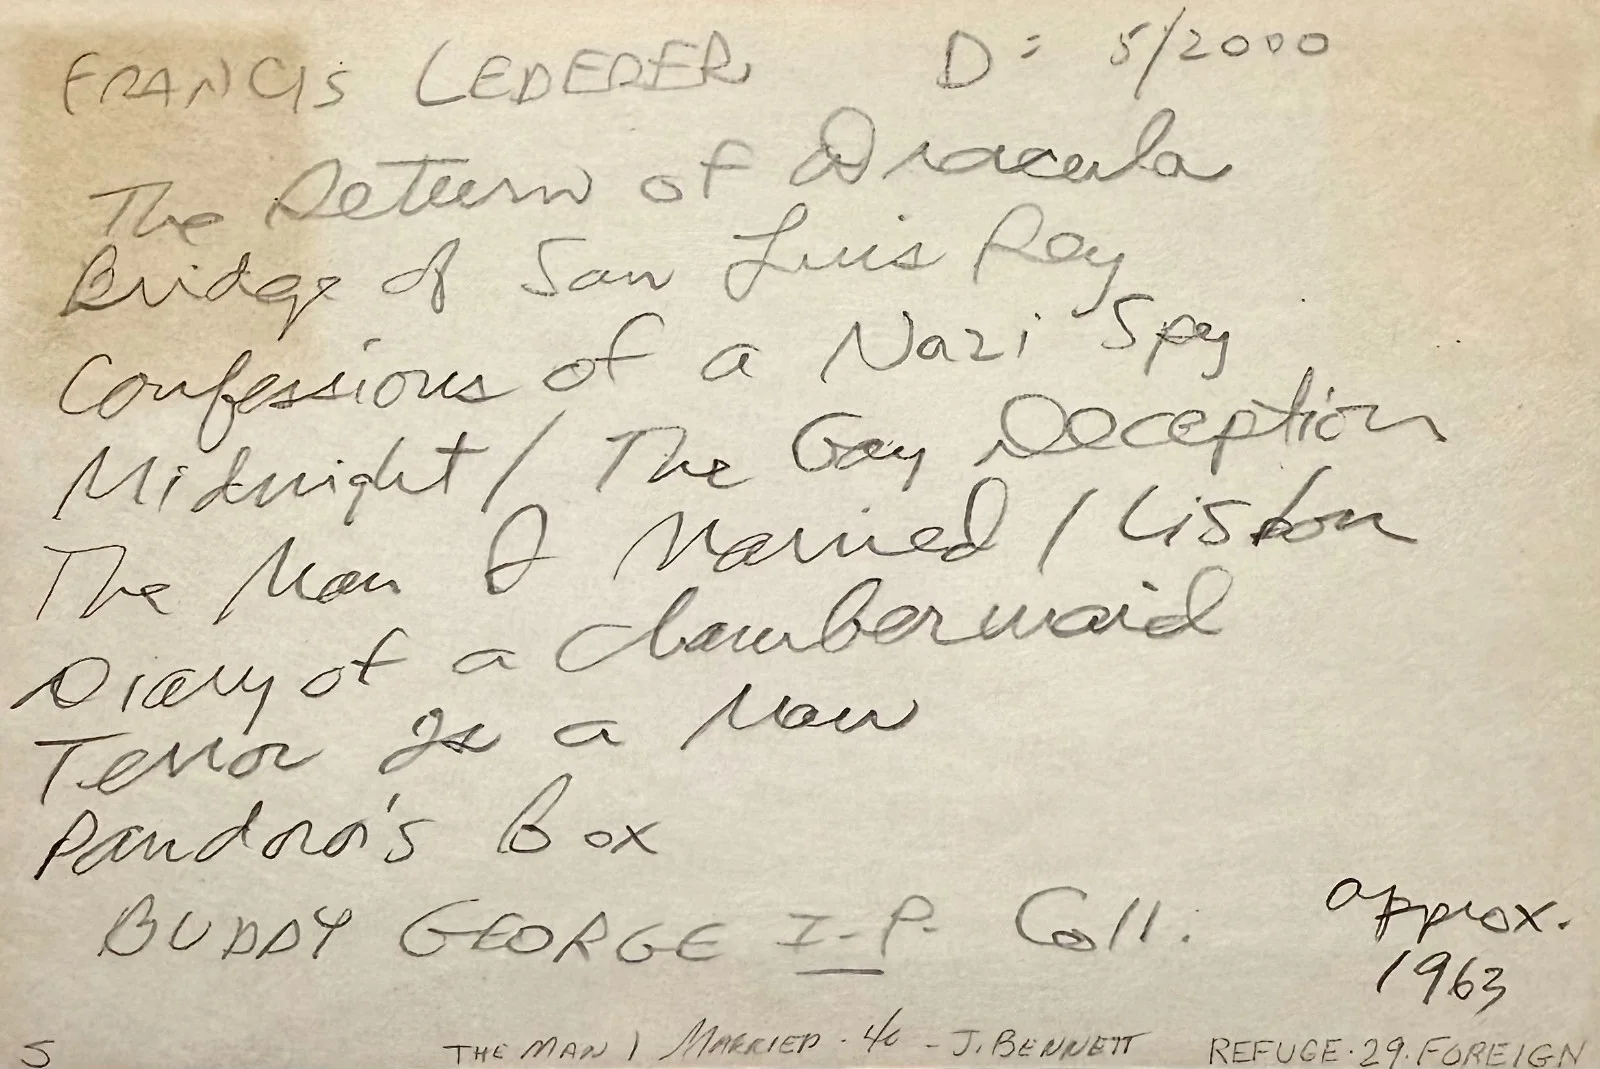 FRANCIS LEDERER D: 5/2000
The Return of Dracula
Bridge of San Luis Rey
Confessions of a Nazi Spy
Midnight / The Gay Deception
The Man I Married / Lisbon
Diary of a Chambermaid
Terror Is a Man
Pandora's Box
BUDDY GEORGE I-P. Coll.
approx.
1963
5 THE MAN I MARRIED. - J. BENNETT REFUGE. 29. FOREIGN